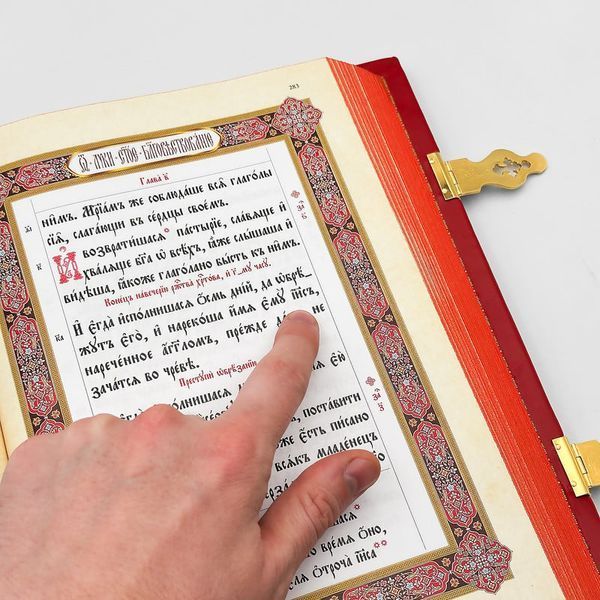 283
Ѿ лꙋки ст҃ое бл҃говѣствованїе
Глава в҃
ни́мъ. Мр҃їа́мъ же соблюда́ше всѧ̑ глаго́лы
сїѧ̑, слага́ющи въ се́рдцы свое́мъ.
И҆ возврати́шасѧ па́стырїе, сла́вѧще и҆
хва́лѧще бг҃а ѡ҆ всѣ́хъ, ꙗ҆̀же слы́шаша и҆
ви́дѣша, ꙗ҆́коже глаго́лано бы́сть къ ни̑мъ.
Коне́цъ навече́рїи ржⷭ҇тва̀ хрⷭ҇то́ва, и҆ у҆_мꙋ часꙋ̀.
И҆ є҆гда̀ и҆спо́лнишасѧ ѻ҆́смь дні́й, да ѡ҆брѣ́_
жꙋтъ є҆го̀, и҆ нареко́ша и҆́мѧ є҆мꙋ̀ і҆и҃съ,
нарече́нное а҆́гг҃ломъ, пре́жде да́же не
зача́тсѧ во чре́вѣ.
Престꙋпѝ ѡ҆брѣ́занїи
поста́вити
же є҆́сть пи́сано
всѧ́къ младе́нецъ
вре́мѧ ѻ҆́но,
ѻ҆троча̀ і҆и҃са